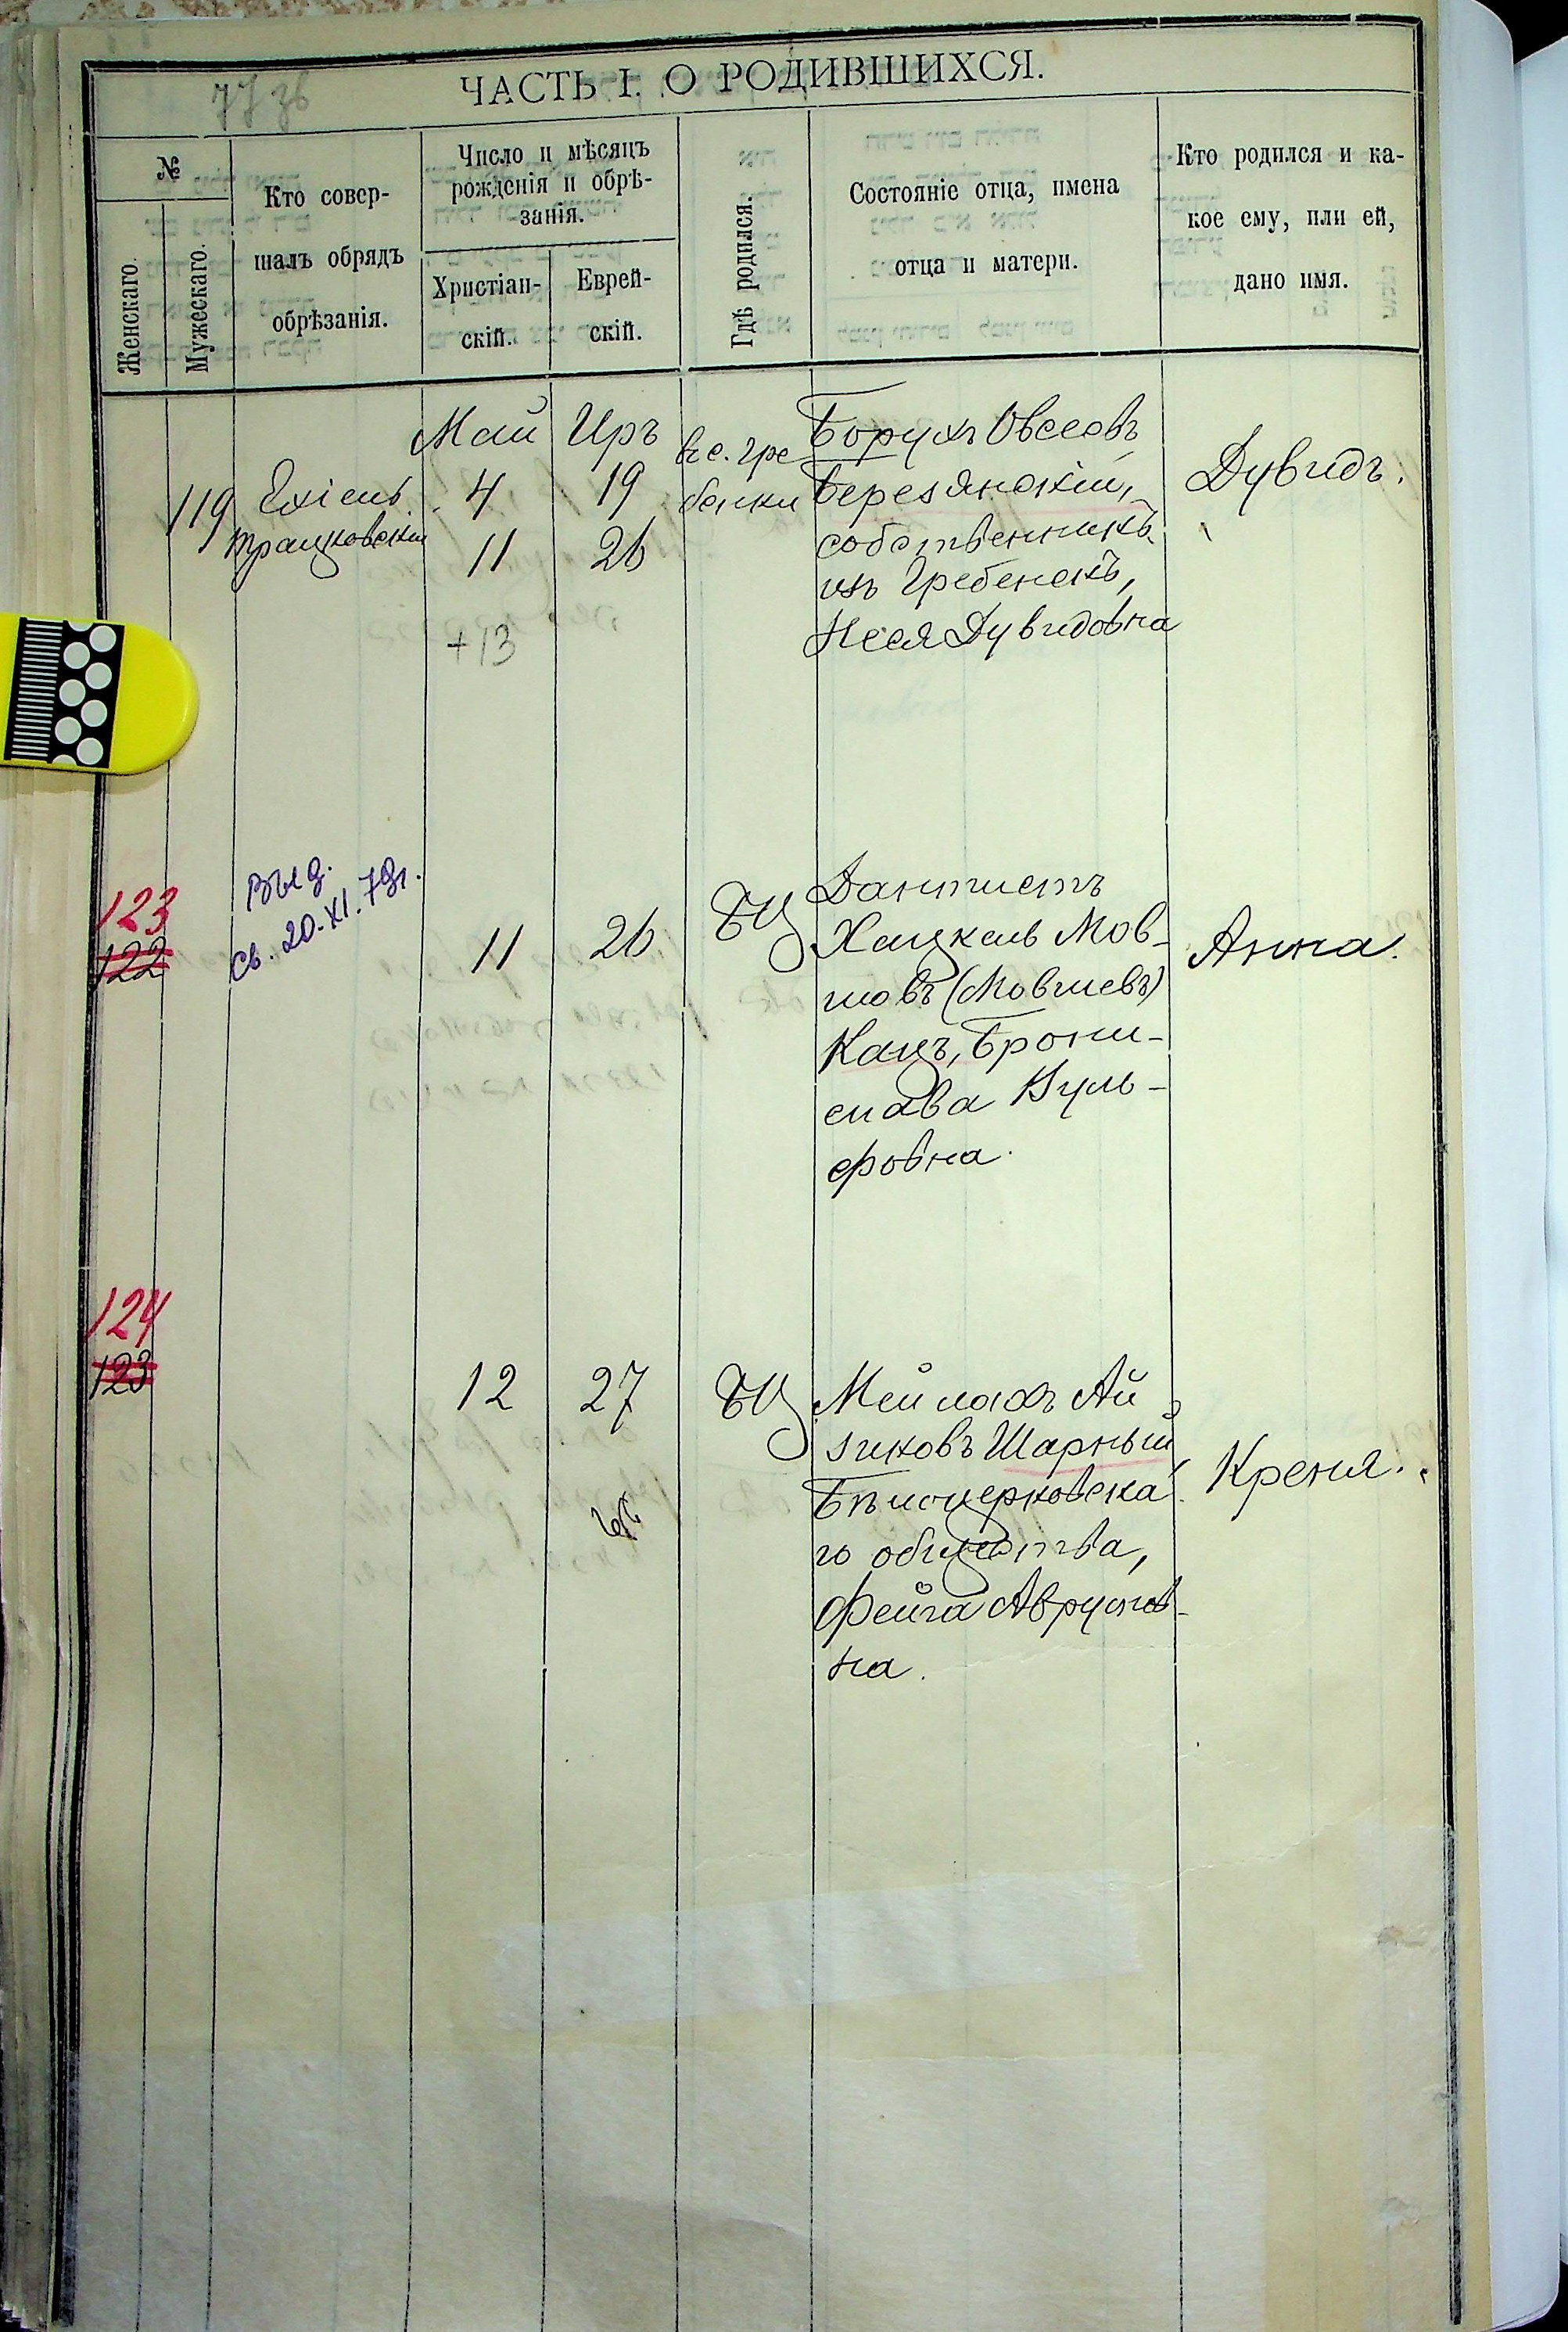 ЧАСТЬ I. О РОДИВШИХСЯ.
№
Женскаго.
Мужескаго.
Кто совер-
шалъ обрядъ
обрѣзанія.
Число и мѣсяцъ
рожденія и обрѣ-
занія.
Христіан-
скій.
Еврей-
скій.
Гдѣ родился.
Состояніе отца, имена
отца и матери.
Кто родился и ка-
кое ему, или ей,
дано имя.
119
Ехіель
Трацковскій
Май
4
11
+13
Иръ
19
26
въ с. Гре
бенки
Борухъ Овсеовъ
Березянскій,
собственникъ
изъ Гребенокъ,
Неся Дувидовна
Дувидъ.
123
122
Выд.
св. 20.XI.79г.
11
26
БЦ
Дантистъ
Хацкель Мов-
шовъ (Мовшевъ)
Кацъ, Брони-
слава Вуль-
фовна.
Анна.
124
123
12
27
БЦ
Мейлахъ Ай
зиковъ Шарный,
Бѣлоцерковска
го общества,
Фейга Аврумов-
на.
Креня.